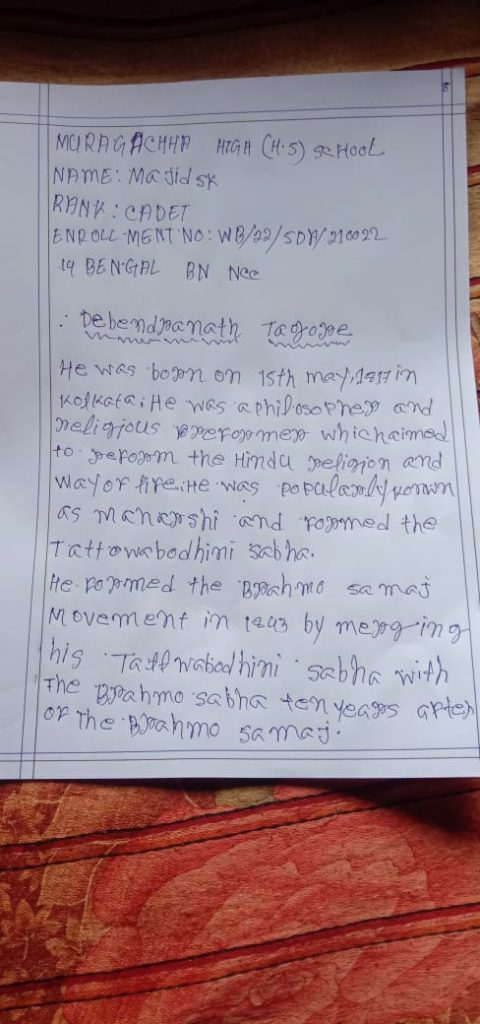 MURAGACHHA HIGH (H.S) SCHOOL
NAME: Majid SK
RANK: CADET
ENROLL-MENT NO: WB/22/SDA/210022
19 BENGAL BN NCC
Debendranath Tagore
He was born on 15th may, 1817 in
Kolkata. He was a philosopher and
religious rreformer which aimed
to reform the Hindu religion and
way of life. He was popularly known
as Maharshi and formed the
Tattowabodhini Sabha.
He formed the Brahmo samaj
Movement in 1843 by merging
his Tattwabodhini sabha with
The Brahmo sabha ten years after
of The Brahmo samaj.